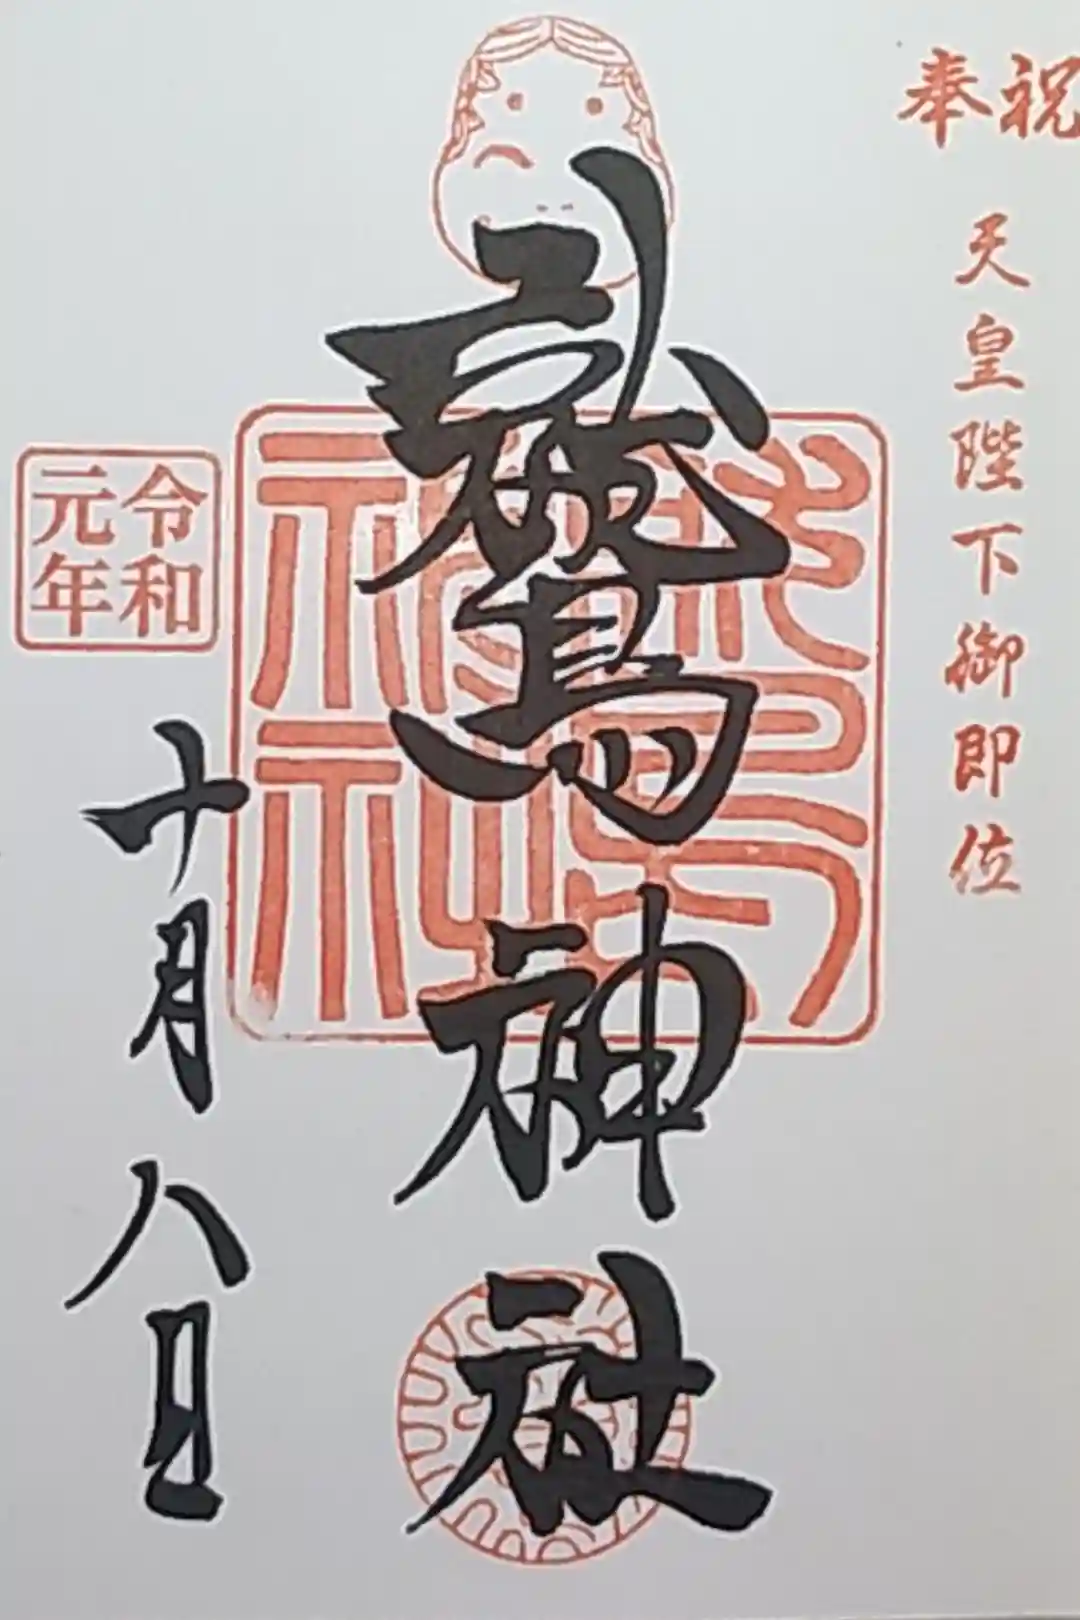 奉祝
天皇陛下御即位
鷲神社
鷲神社
令和元年
十月八日